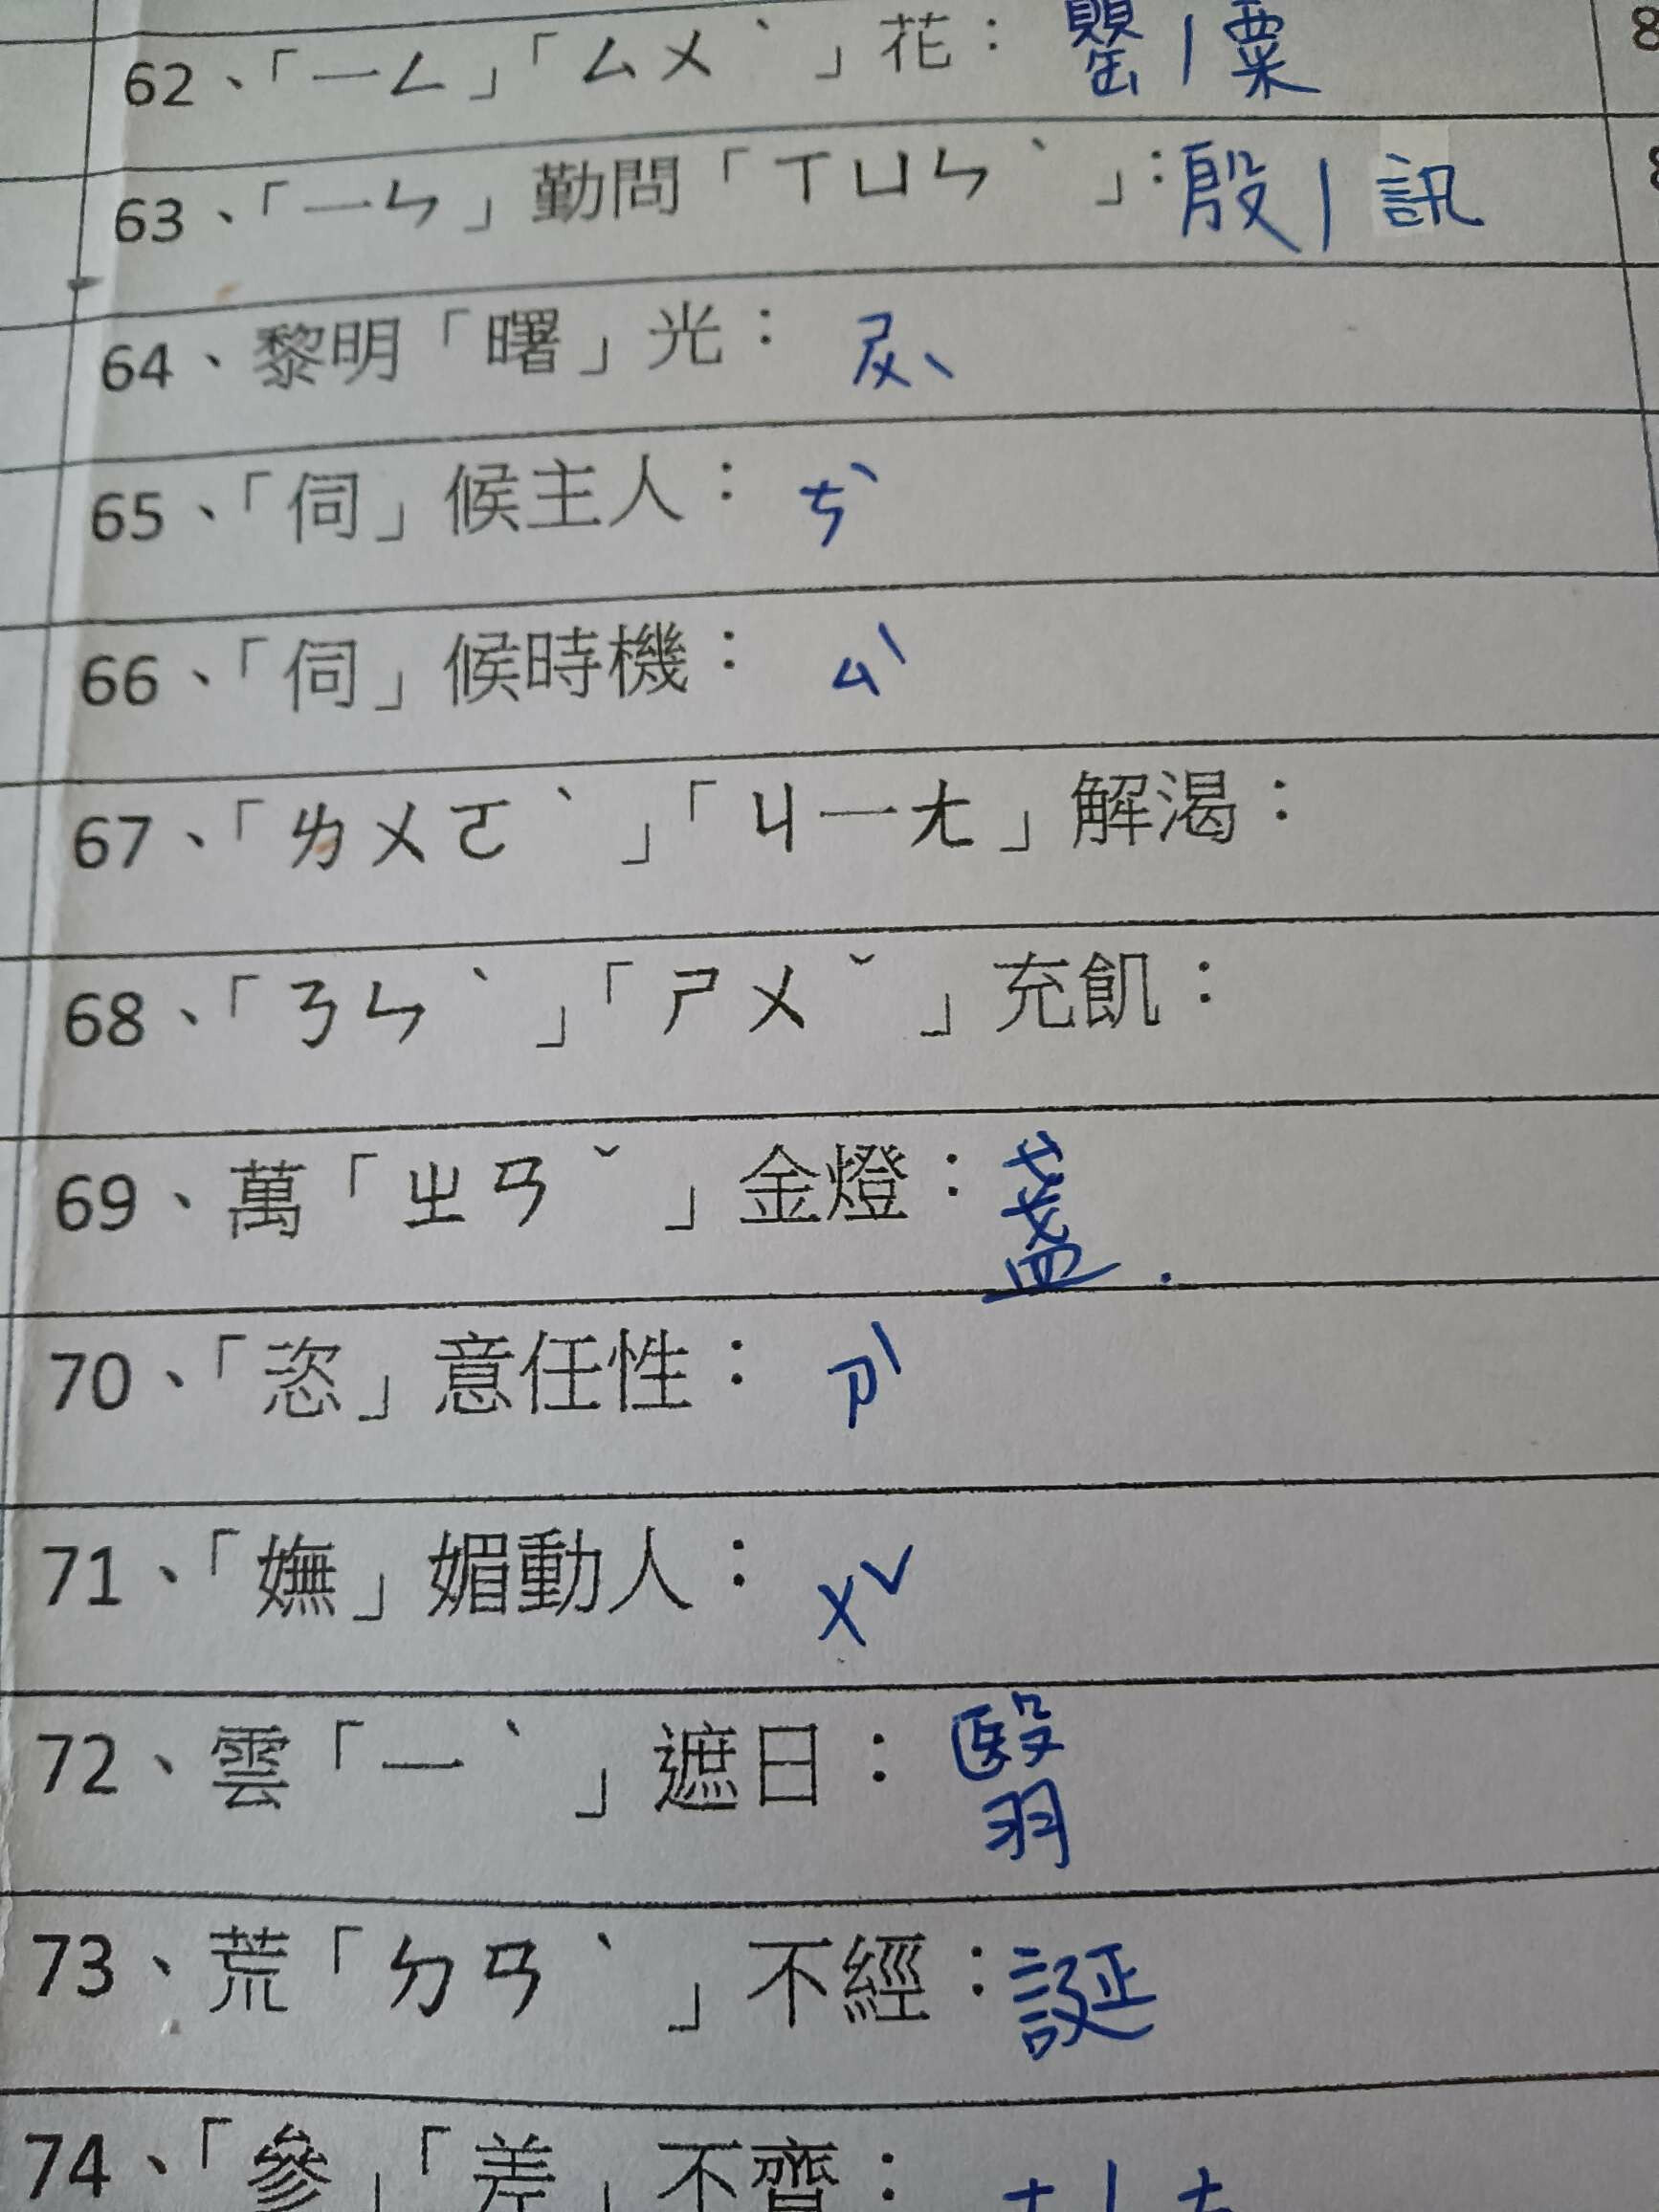 62、「ㄧㄥ」「ㄙㄨˋ」花：罌|粟
63、「ㄧㄣ」勤問「ㄒㄩㄣˋ」：殷|訊
64、黎明「曙」光：ㄕㄨˋ
65、「伺」候主人：ㄘˋ
66、「伺」候時機：ㄙˋ
67、「ㄌㄨㄛˋ」「ㄐㄧㄤ」解渴：
68、「ㄋㄣˋ」「ㄕㄨˇ」充飢：
69、萬「ㄓㄢˇ」金燈：盞.
70、「恣」意任性：ㄗˋ
71、「嫵」媚動人：ㄨˇ
72、雲「ㄧˋ」遮日：翳
73、荒「ㄉㄢˋ」不經：誕
74、「參」「差」不齊：